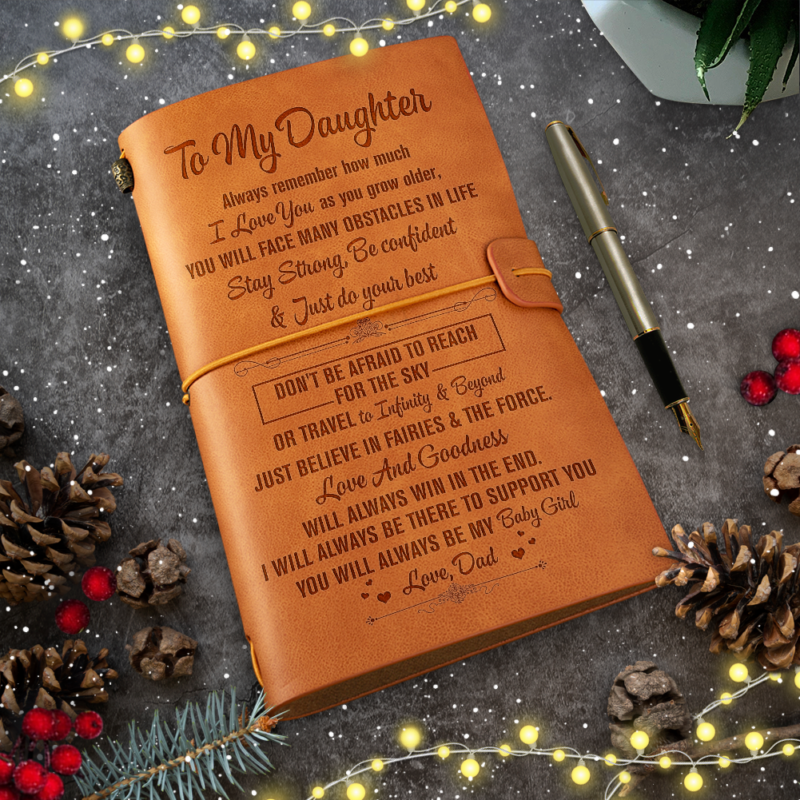 To My Daughter
Always remember how much
I Love You as you grow older,
YOU WILL FACE MANY OBSTACLES IN LIFE
Stay Strong, Be confident
& Just do your best
DON'T BE AFRAID TO REACH
FOR THE SKY
OR TRAVEL to Infinity & Beyond
JUST BELIEVE IN FAIRIES & THE FORCE.
Love And Goodness
WILL ALWAYS WIN IN THE END.
I WILL ALWAYS BE THERE TO SUPPORT YOU
YOU WILL ALWAYS BE MY Baby Girl
Love, Dad